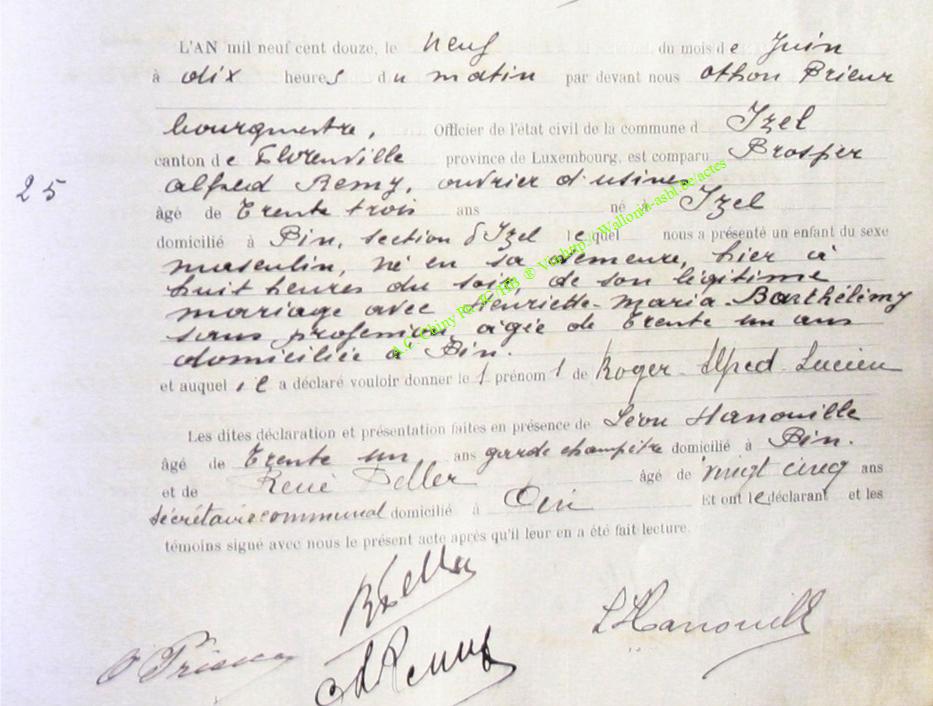 L'AN mil neuf cent douze, le neuf du mois de Juin
à dix heures du matin par devant nous Othon Prieur
bourgmestre, Officier de l'état civil de la commune d Izel
canton de Florenville province de Luxembourg, est comparu Prosper
alfred Remy, ouvrier d'usines
25
âgé de trente trois ans né à Izel
domicilié à Pin, section d'Izel lequel nous a présenté un enfant du sexe
masculin, né en sa demeure, hier à
huit heures du soir, de son légitime
mariage avec Henriette-Maria-Barthélémy
sans profession, agée de trente un ans
domiciliée à Pin.
et auquel il a déclaré vouloir donner le prénom de Roger-Alfred-Lucien
Les dites déclaration et présentation faites en présence de Léon Hanouille
âgé de trente un ans garde champêtre domicilié à Pin.
et de René âgé de vingt cinq ans
secrétaire communal domicilié à Et ont le déclarant et les
témoins signé avec nous le présent acte après qu'il leur en a été fait lecture.
O Prieur
A Remy
L Hanouille